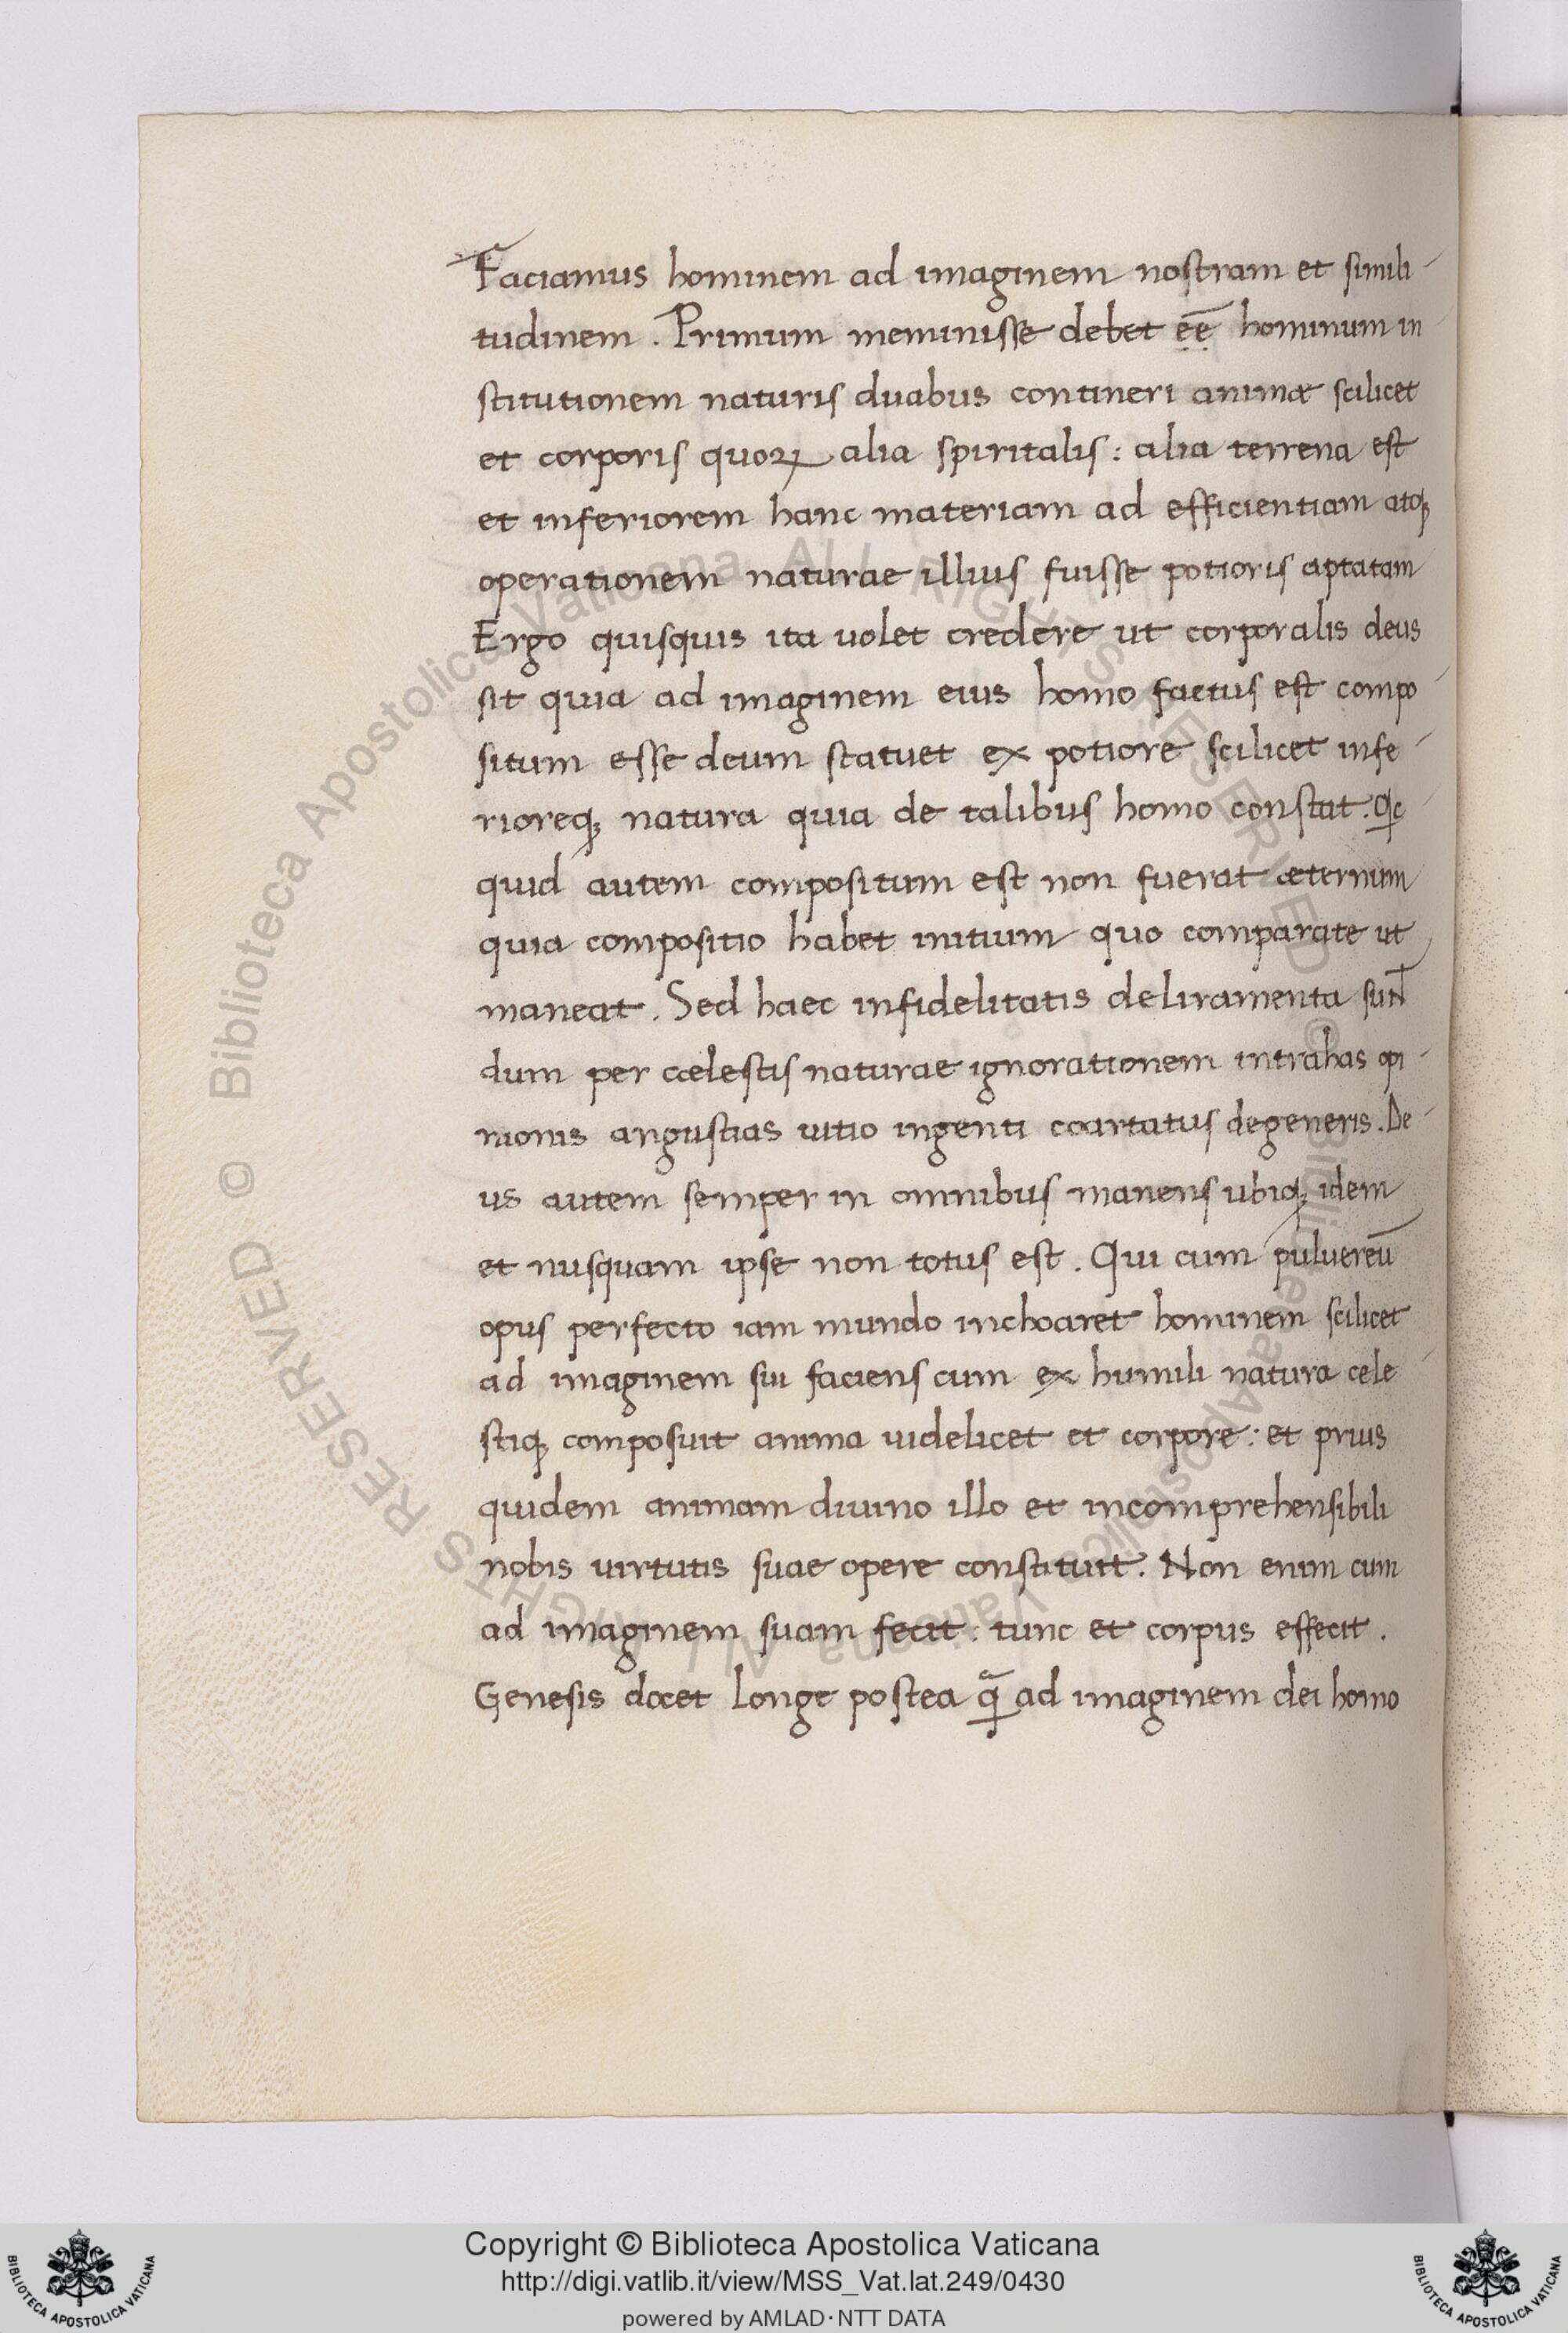 Faciamus hominem ad imaginem nostram et simili-
tudinem. Primum meminisse debet ẹẹ̄ hominum in
stitutionem naturis duabus contineri animæ scilicet
et corporis quoꝝ alia spiritalis: alia terrena est
et inferiorem hanc materiam ad efficientiam atoꝫ
operationem naturae illius fuisse potioris aptatam
Ergo quisquis ita uolet credere ut corporalis deus
sit quia ad imaginem eius homo factus est compo-
situm esse deum statuet ex potiore scilicet infe-
rioreqꝫ natura quia de talibus homo constat.
quid autem compositum est non fuerat æternum
quia compositio habet initium quo comparate ut
maneat. Sed haec infidelitatis deliramenta sunt
dum per cœlestis naturae ignorationem intrahas opi-
nionis angustias uitio ingenti coartatus degeneris. De-
us autem semper in omnibus manens ubiqꝫ idem
et nusquam ipse non totus est. Qui cum puluereū
opus perfecto iam mundo inchoaret hominem scilicet
ad imaginem sui faciens cum ex humili natura cele-
stiqꝫ composuit anima uidelicet et corpore: et prius
quidem animam diuino illo et incomprehensibili
nobis virtutis suae opere constituit. Non enim cum
ad imaginem suam fecit: tunc et corpus effecit.
Genesis docet longe postea ꝙ̃ ad imaginem dei homo
Copyright © Biblioteca Apostolica Vaticana
http://digi.vatlib.it/view/MSS_Vat.lat.249/0430
powered by AMLAD·NTT DATA
BIBLIOTECA APOSTOLICA VATICANA
BIBLIOTECA APOSTOLICA VATICANA
© Biblioteca Apostolica Vaticana ALL RIGHTS RESERVED © Biblioteca Apostolica Vaticana ALL RIGHTS RESERVED